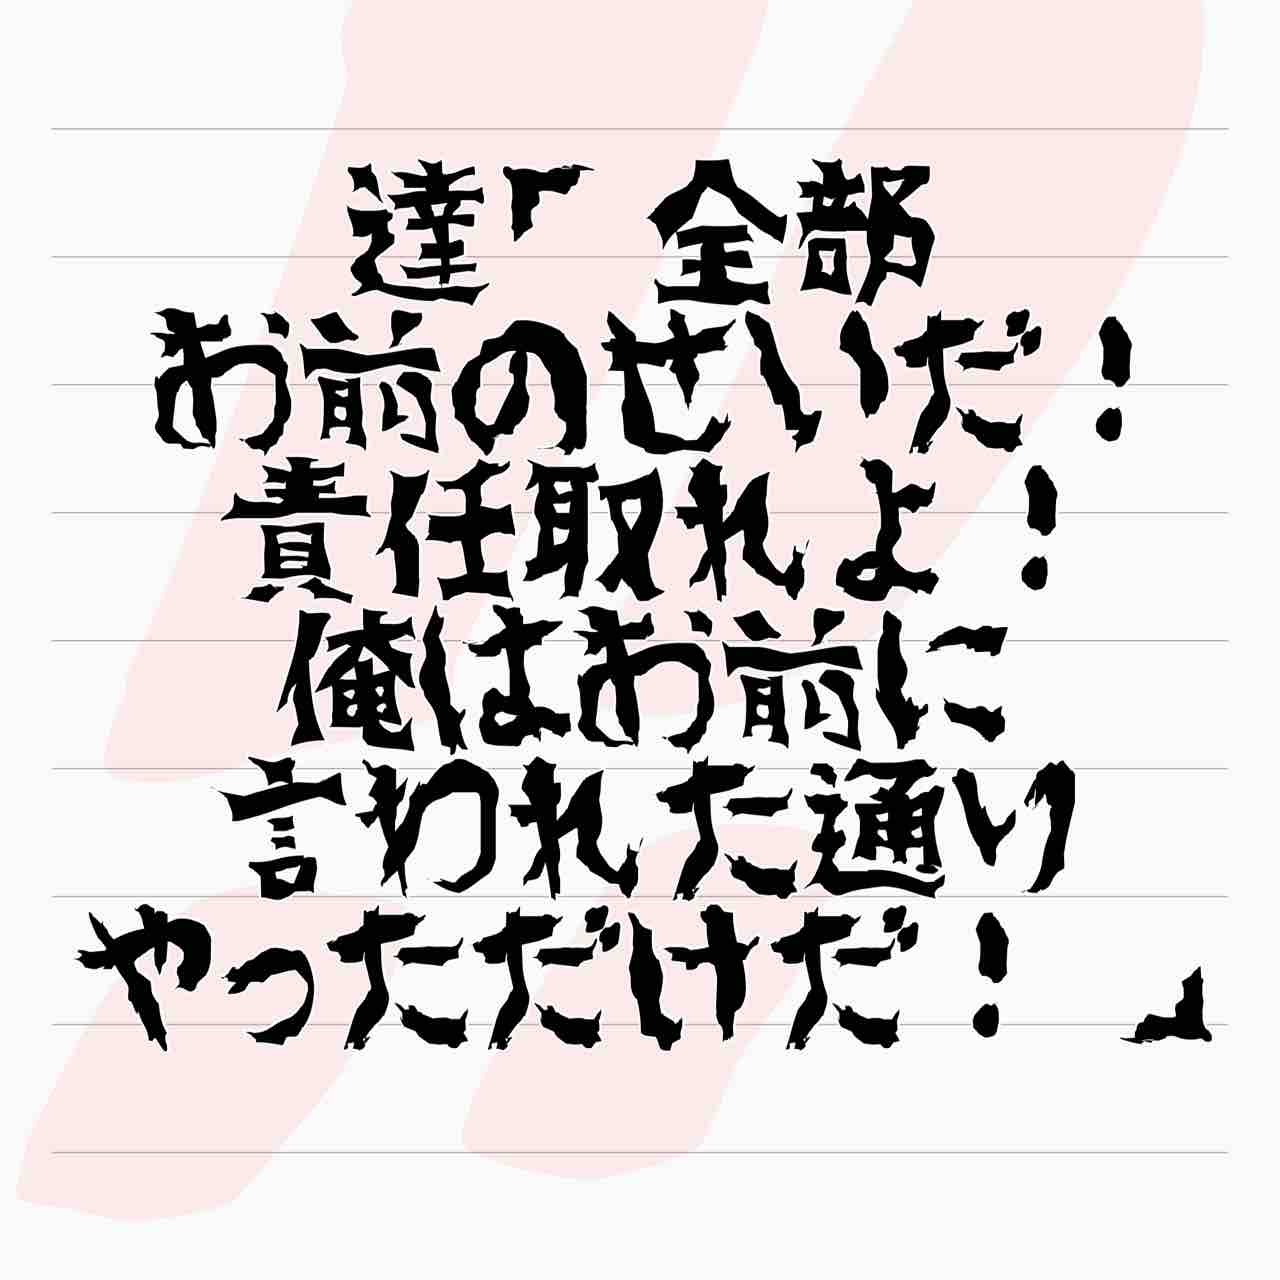 達「全部
お前のせいだ！
責任取れよ！
俺はお前に
言われた通り
やっただだけだ！」